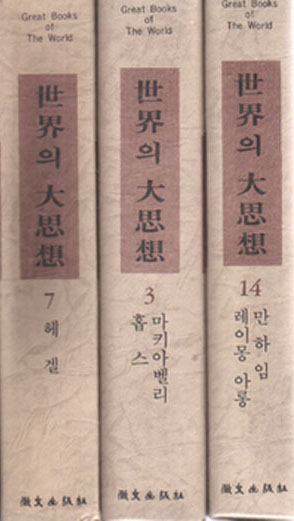 Great Books
of
The World
世界의 大思想
7
헤겔
徽文出版社
Great Books
of
The World
世界의 大思想
3
마키아벨리
홉스
徽文出版社
Great Books
of
The World
世界의 大思想
14
만하임
레이몽 아롱
徽文出版社